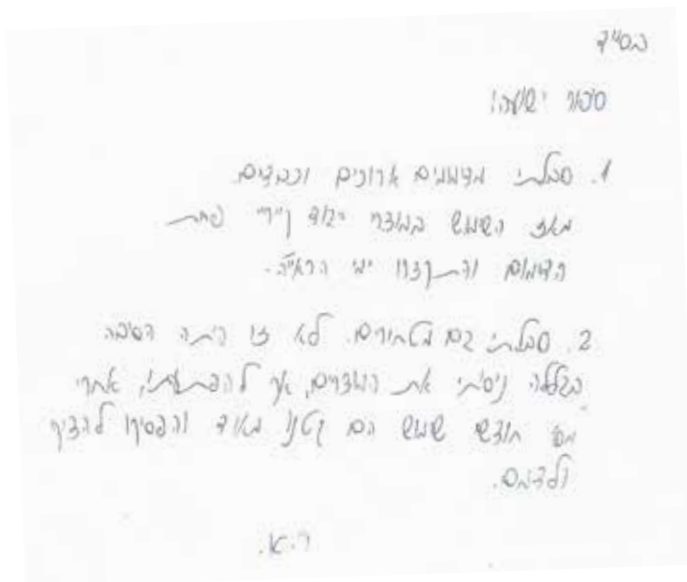 בס"ד
סיפור ישועה!
1. סבלתי מדימומים ארוכים וכבדים.
מאז השימוש במוצרי "בוד קייר" פחת
הדימום והתקצרו ימי הראייה.
2. סבלתי גם מטחורים. לא זו היתה הסיבה
בגללה ניסיתי את המוצרים, אך להפתעתי, אחרי
חודש שימוש הם קטנו מאוד והפסיקו להציק
ולדמם.
ר.א.